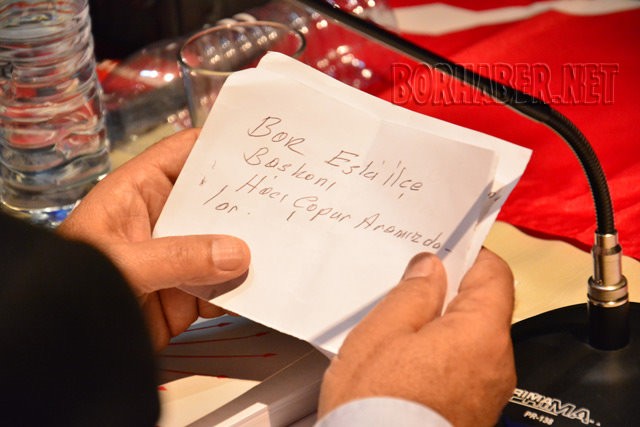 BORHABER.NET
Bor Eski İlçe
Başkanı
Hacı Çopur Aramızda-
lar.
PR-138